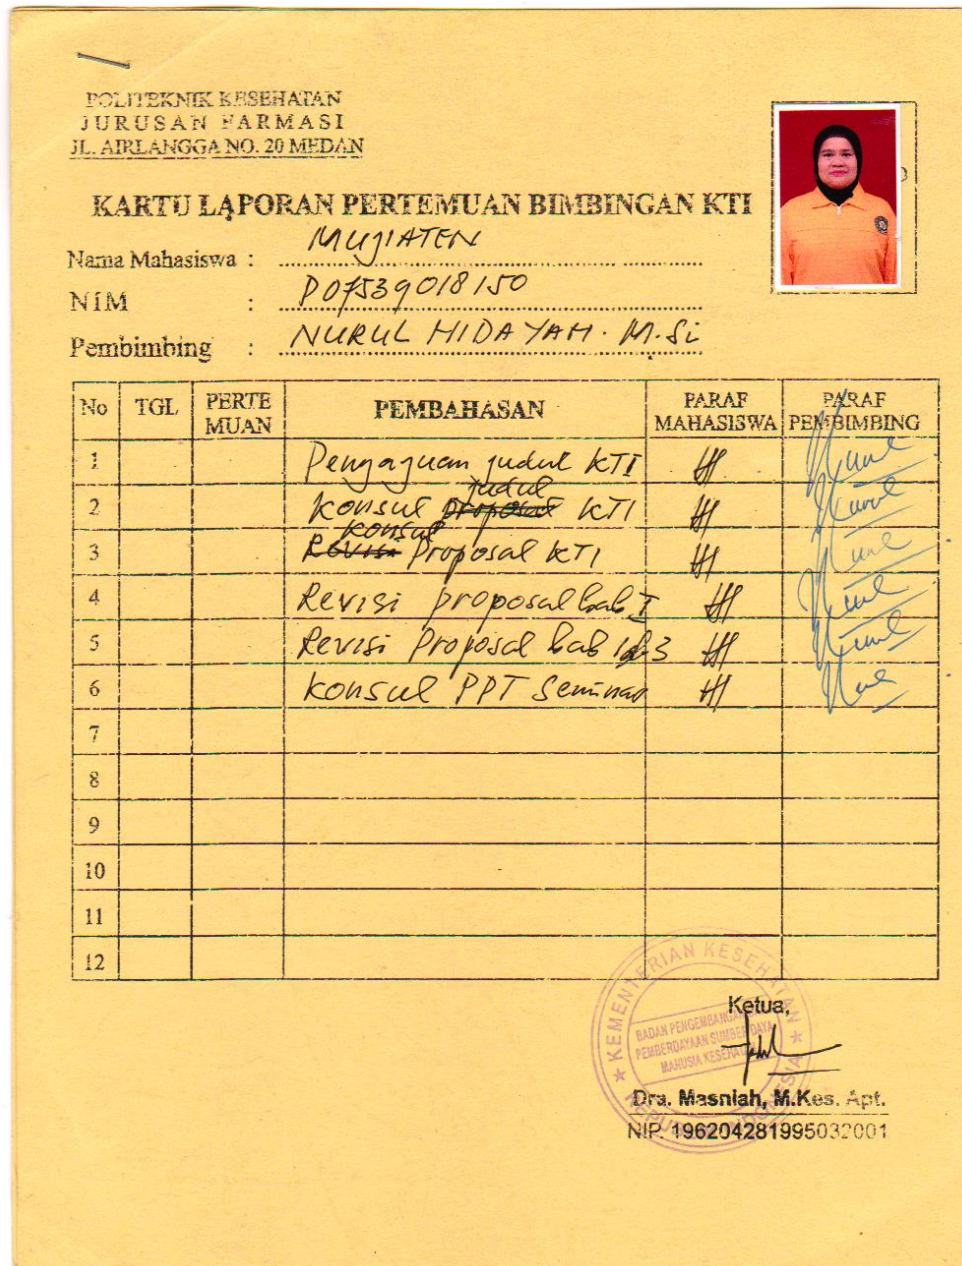 POLITEKNIK KESEHATAN
JURUSAN FARMASI
JL. AIRLANGGA NO. 20 MEDAN
KARTU LAPORAN PERTEMUAN BIMBINGAN KTI
Nama Mahasiswa : MUJIATEN
NIM : P07539018150
Pembimbing : NURUL HIDAYAH. M.Si
No TGL PERTE MUAN PEMBAHASAN PARAF MAHASISWA PARAF PEMBIMBING
1 Pengajuan judul KTI
2 Konsul judul KTI
3 Konsul Proposal KTI
4 Revisi proposal bab I
5 Revisi Proposal bab
6 Konsul PPT Seminar
7
8
9
10
11
12
KEMENTERIAN KESEHATAN
BADAN PENGEMBANGAN
PEMBERDAYAAN SUMBER DAYA
MANUSIA KESEHATAN
REPUBLIK INDONESIA
Ketua,
Dra. Masniah, M.Kes. Apt.
NIP. 196204281995032001